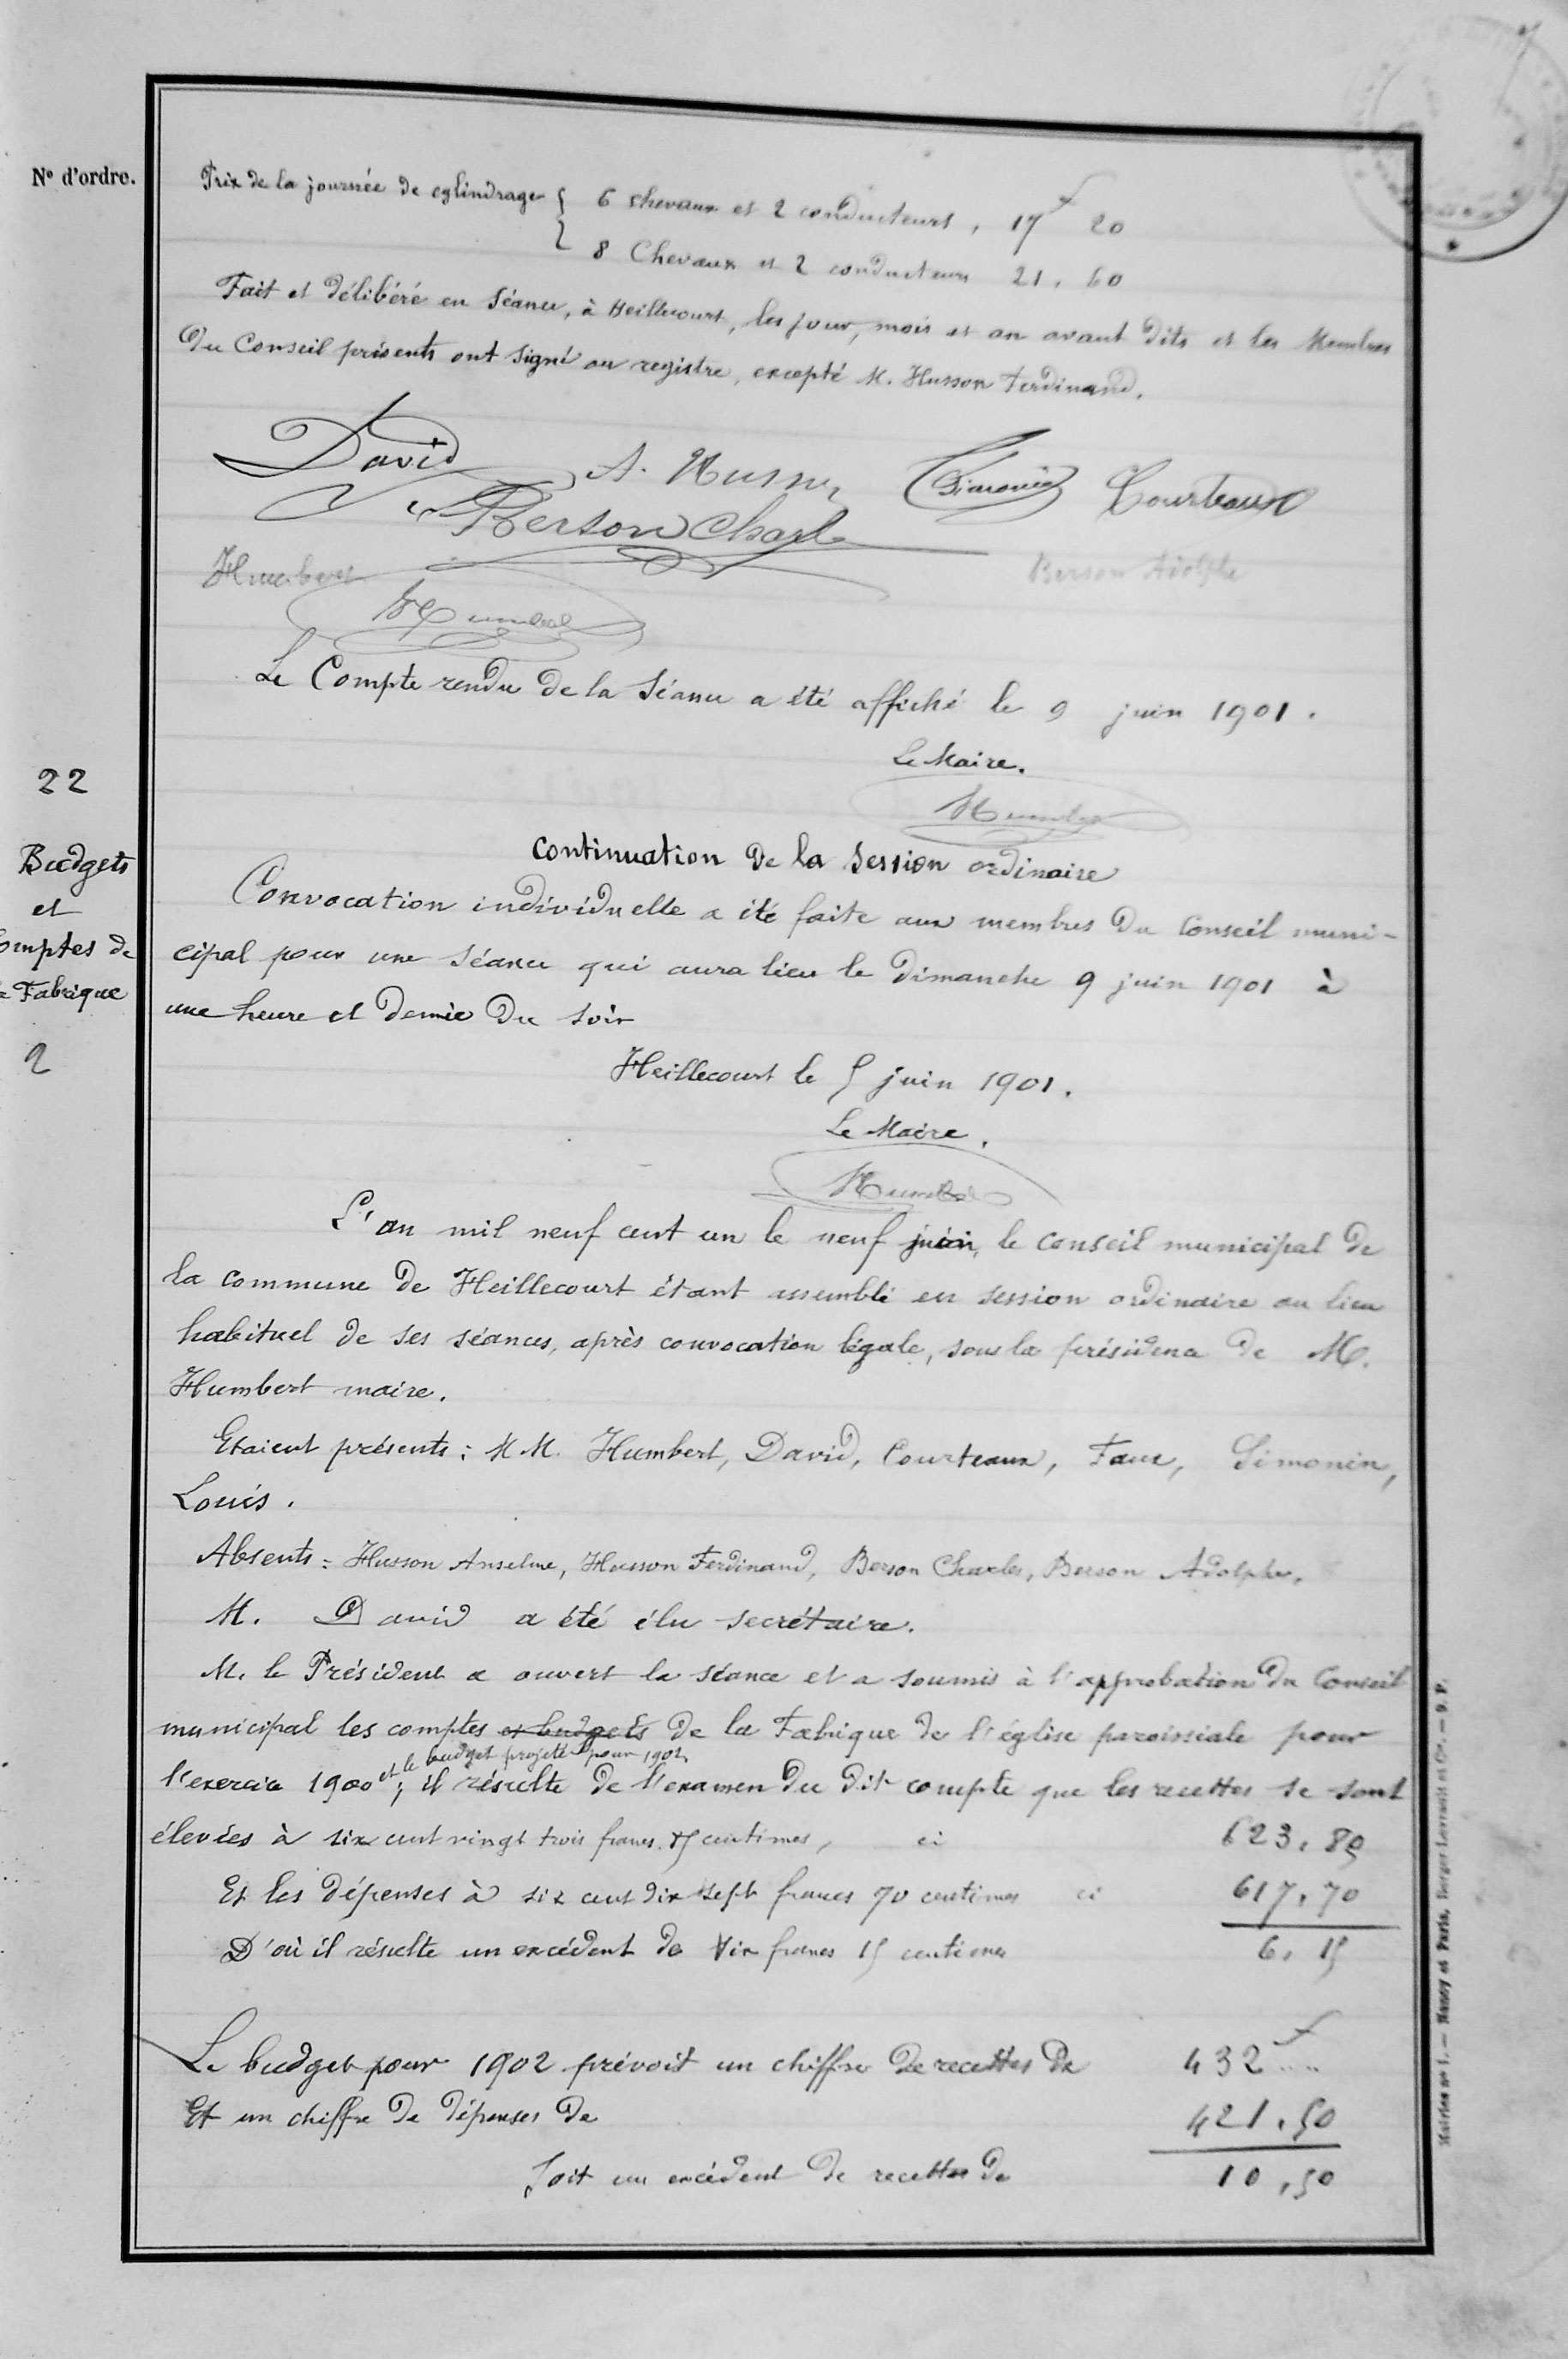 N° d'ordre.
Prix de la journée de cylindrage { 6 chevaux et 2 conducteurs, 17f 20
8 Chevaux et 2 conducteurs 21.60
Fait et délibéré en séance, à Heillecourt, les jour, mois et an avant dits et les Membres
du Conseil présents ont signé au registre, excepté M. Husson Ferdinand.
David A. Husson Simonin Courteaux
Berson Charle
Humbert Berson Adolphe
Humbert
Le Compte rendu de la séance a été affiché le 9 juin 1901.
Le Maire.
Humbert
22
Budgets
et
omptes de
Fabrique
2
Continuation de la session ordinaire
Convocation individuelle a été faite aux membres du Conseil muni-
cipal pour une séance qui aura lieu le dimanche 9 juin 1901 à
une heure et demie du soir
Heillecourt le 5 juin 1901.
Le Maire.
Humbert
L'an mil neuf cent un le neuf juin, le conseil municipal de
la commune de Heillecourt étant assemblé en session ordinaire au lieu
habituel de ses séances, après convocation légale, sous la présidence de M.
Humbert maire.
Etaient présents : M M. Humbert, David, Courteaux, Faux, Simonin,
Louis.
Absents : Husson Anselme, Husson Ferdinand, Berson Charles, Berson Adolphe.
M. David a été élu secrétaire.
M. le Président a ouvert la séance et a soumis à l'approbation du Conseil
municipal les comptes et budgets de la Fabrique de l'église paroissiale pour
et le budget projeté pour 1902
l'exercice 1900 ; il résulte de l'examen du dit compte que les recettes se sont
élevées à six cent vingt trois francs 85 centimes, ci 623.85
Et les dépenses à six cent dix sept francs 70 centimes ci 617.70
D'où il résulte un excédent de six francs 15 centimes 6.15
Le budget pour 1902 prévoit un chiffre de recettes de 432f ....
Et un chiffre de dépenses de 421.50
Soit un excédent de recettes de 10,50
Mairies n° 1. — Nancy et Paris, Berger-Levrault et Cie. — 9. P.